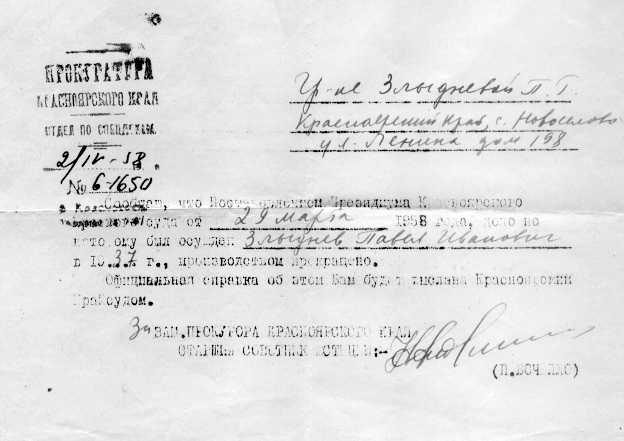 ПРОКУРАТУРА
КРАСНОЯРСКОГО КРАЯ
ОТДЕЛ ПО СПЕЦДЕЛАМ
2/IV-58 г.
№ 6-1650
г. Красноярск
Гр-не Злыдневой П. Г.
Красноярский край, с. Новоселово
ул. Ленина дом 198
Сообщаю, что Постановлением Президиума Красноярского
крайсуда от 29 марта 1958 года, дело по
которому был осужден Злыднев Павел Иванович
в 1937 г., производством прекращено.
Официальная справка об этом Вам будет выслана Красноярским
Крайсудом.
За ЗАМ. ПРОКУРОРА КРАСНОЯРСКОГО КРАЯ
СТАРШИЙ СОВЕТНИК ЮСТИЦИИ:-